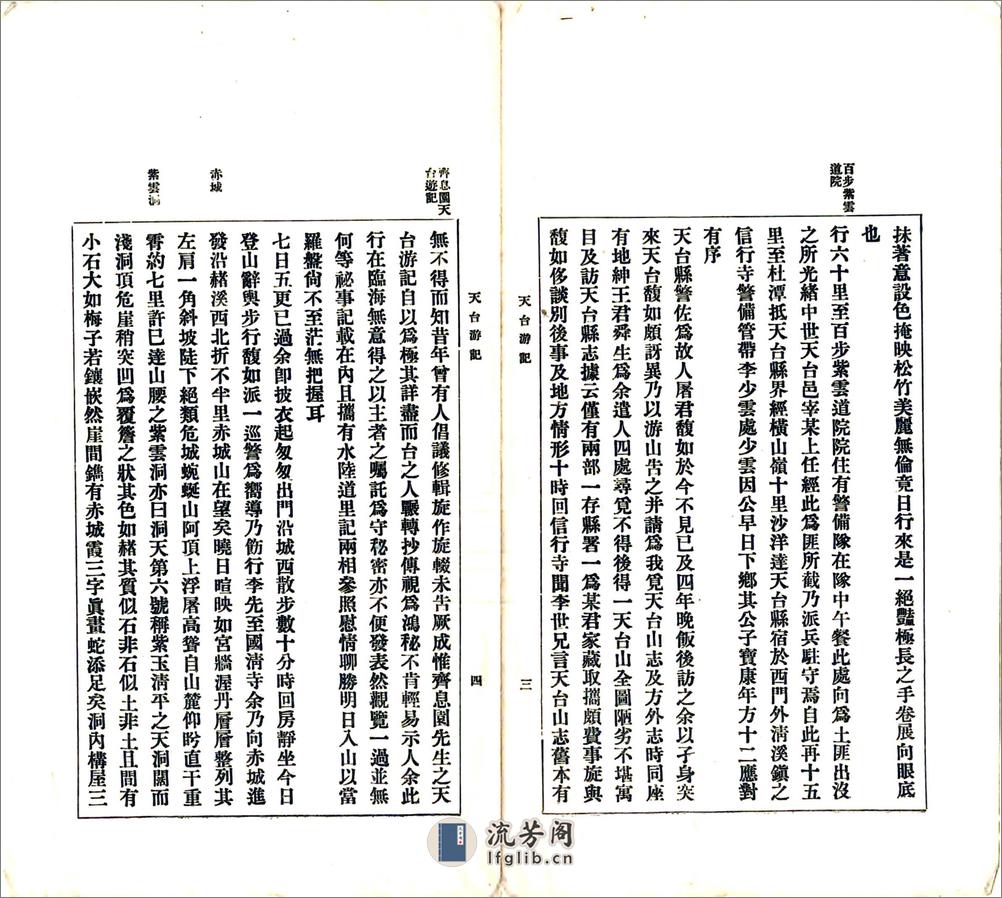 百步紫雲
道院
抹著意設色掩映松竹美麗無倫竟日行來是一絕豔極長之手卷展向眼底
也
行六十里至百步紫雲道院院住有警備隊在隊中午餐此處向為土匪出沒
之所光緒中世天台邑宰某上任經此為匪所截乃派兵駐守焉自此再十五
里至杜潭抵天台縣界經橫山嶺十里沙洋達天台縣宿於西門外清溪鎮之
信行寺警備管帶李少雲處少雲因公早日下鄉其公子寶康年方十二應對
有序
天台縣警佐為故人屠君馥如於今不見已及四年晚飯後訪之余以孑身突
來天台馥如頗訝異乃以游山告之并請為我覓天台山志及方外志時同座
有地紳王君舜生為余遣人四處尋覓不得後得一天台山全圖陋劣不堪寓
目及訪天台縣志據云僅有兩部一存縣署一為某君家藏取攜頗費事旋與
馥如侈談別後事及地方情形十時回信行寺聞李世兄言天台山志舊本有
天台游記
三
齊息園天
台遊記
赤城
紫雲洞
無不得而知昔年曾有人倡議修輯旋作旋輟未告厥成惟齊息園先生之天
台游記自以為極其詳盡而台之人驟轉抄傳視為鴻秘不肯輕易示人余此
行在臨海無意得之以主者之囑託為守秘密亦不便發表然觀覽一過並無
何等祕事記載在內且攜有水陸道里記兩相參照慰情聊勝明日入山以當
羅盤尙不至茫無把握耳
七日五更已過余卽披衣起匆匆出門沿城西散步數十分時回房靜坐今日
登山辭輿步行馥如派一巡警為嚮導乃飭行李先至國清寺余乃向赤城進
發沿赭溪西北折不半里赤城山在望矣曉日暄映如宮牆渥丹層層整列其
左肩一角斜坡陡下絕類危城蜿蜒山阿頂上浮屠高聳自山麓仰昑直干重
霄約七里許已達山腰之紫雲洞亦曰洞天第六號稱紫玉淸平之天洞闊而
淺洞頂危崖稍突凹為覆簷之狀其色如赭其質似石非石似土非土且間有
小石大如梅子若鑲嵌然崖間鐫有赤城霞三字眞畫蛇添足矣洞內構屋三
天台游記
四
流芳阁
lfglib.cn